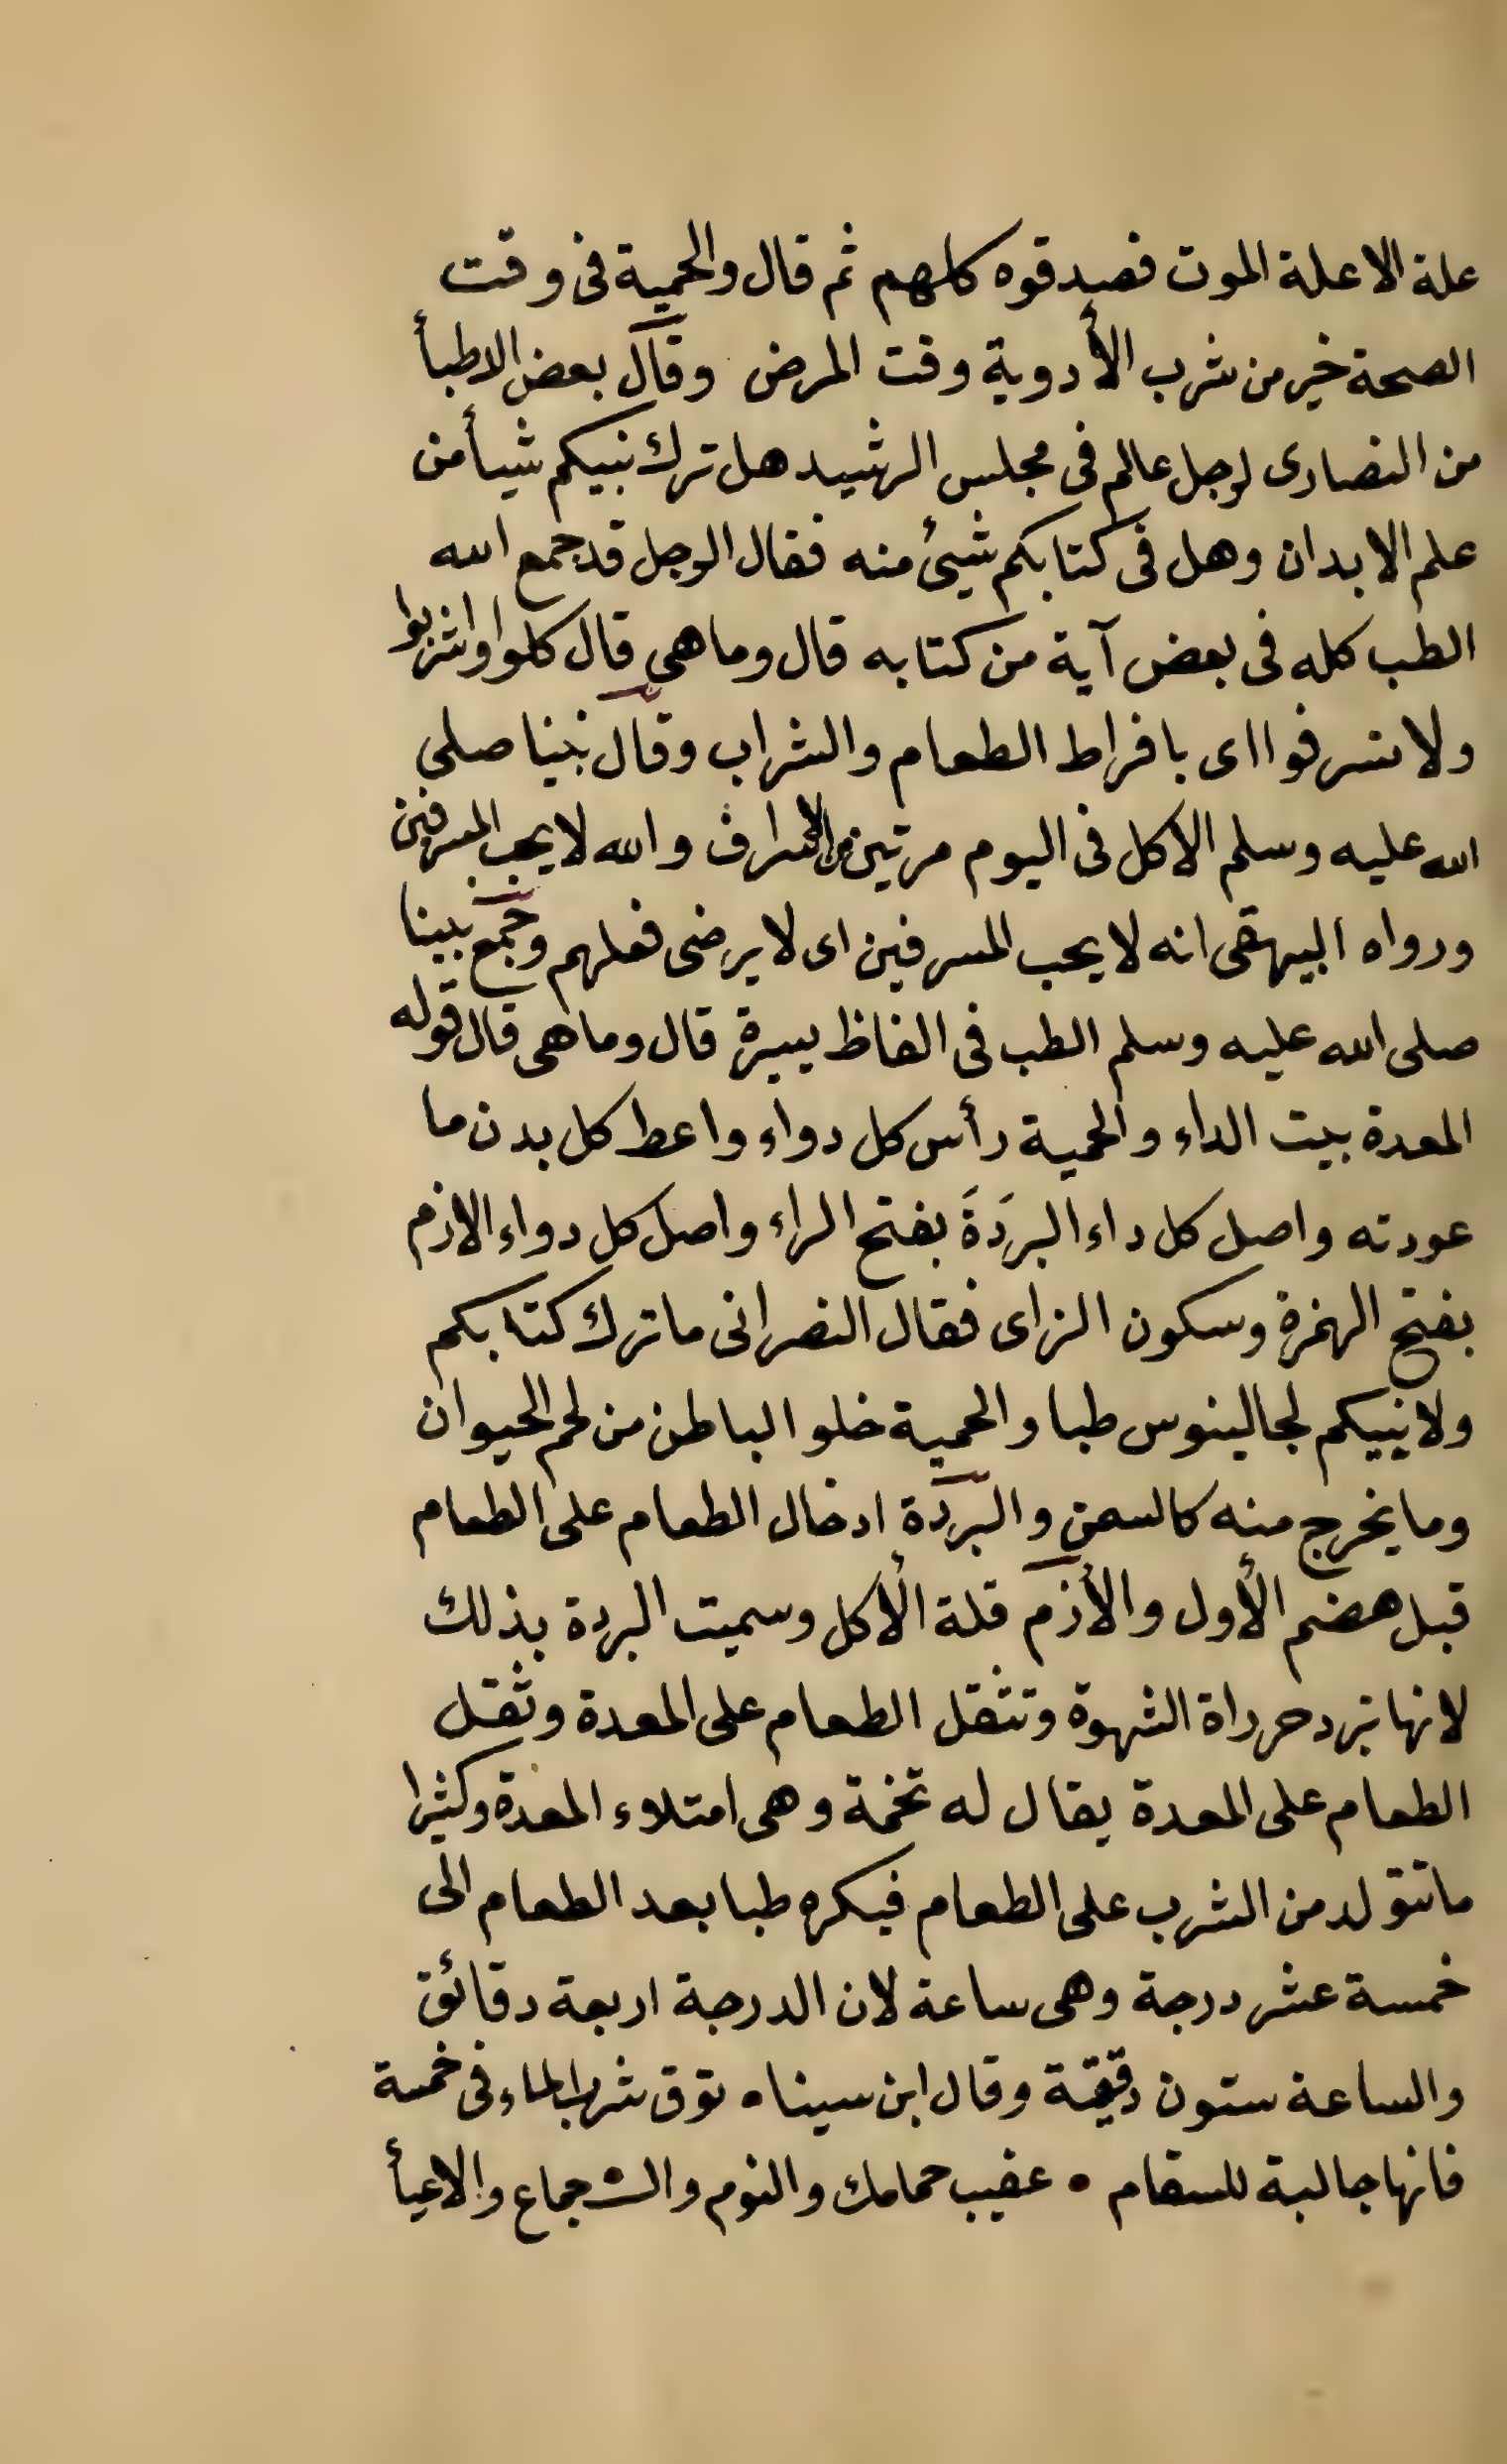 علة الا علة الموت فصدقوه كلهم ثم قال والحمية فى وقت
الصحة خير من شرب الأدوية وقت المرض وقال بعض الاطبأ
من النصارى لرجل عالم فى مجلس الرشيد هل ترك نبيكم شيأ من
علم الابدان وهل فى كتابكم شيئ منه فقال الرجل قد جمع الله
الطب كله فى بعض آية من كتابه قال وما هى قال كلوا واشربوا
ولا تسرفوا اى بافراط الطعام والشراب وقال نبينا صلى
الله عليه وسلم الاكل فى اليوم مرتين من الاسراف والله لا يحب المسرفين
ورواه البيهقى انه لا يحب المسرفين اى لا يرضى فعلهم وجمع نبينا
صلى الله عليه وسلم الطب فى الفاظ يسيرة قال وما هى قال قوله
المعدة بيت الداء والحمية رأس كل دواء واعط كل بدن ما
عودته واصل كل داء البرَدَةَ بفتح الراء واصل كل دواء الازم
بفتح الهمزة وسكون الزاى فقال النصرانى ما ترك كتابكم
ولا نبيكم لجالينوس طبا والحمية خلو الباطن من لحم الحيوان
وما يخرج منه كالسمن والبردة ادخال الطعام على الطعام
قبل هضم الأول والأزم قلة الأكل وسميت البردة بذلك
لانها تبرد حرراة الشهوة وتثقل الطعام على المعدة وثقل
الطعام على المعدة يقال له تخمة وهى امتلاء المعدة وكثيرا
ما تتولد من الشرب على الطعام فيكره طبا بعد الطعام الى
خمسة عشر درجة وهى ساعة لان الدرجة اربعة دقائق
والساعة ستون دقيقة وقال ابن سينا • توق شرب الماء فى خمسة
فانها جالبة للسقام • عقيب حمامك والنوم والجماع والاعيأ